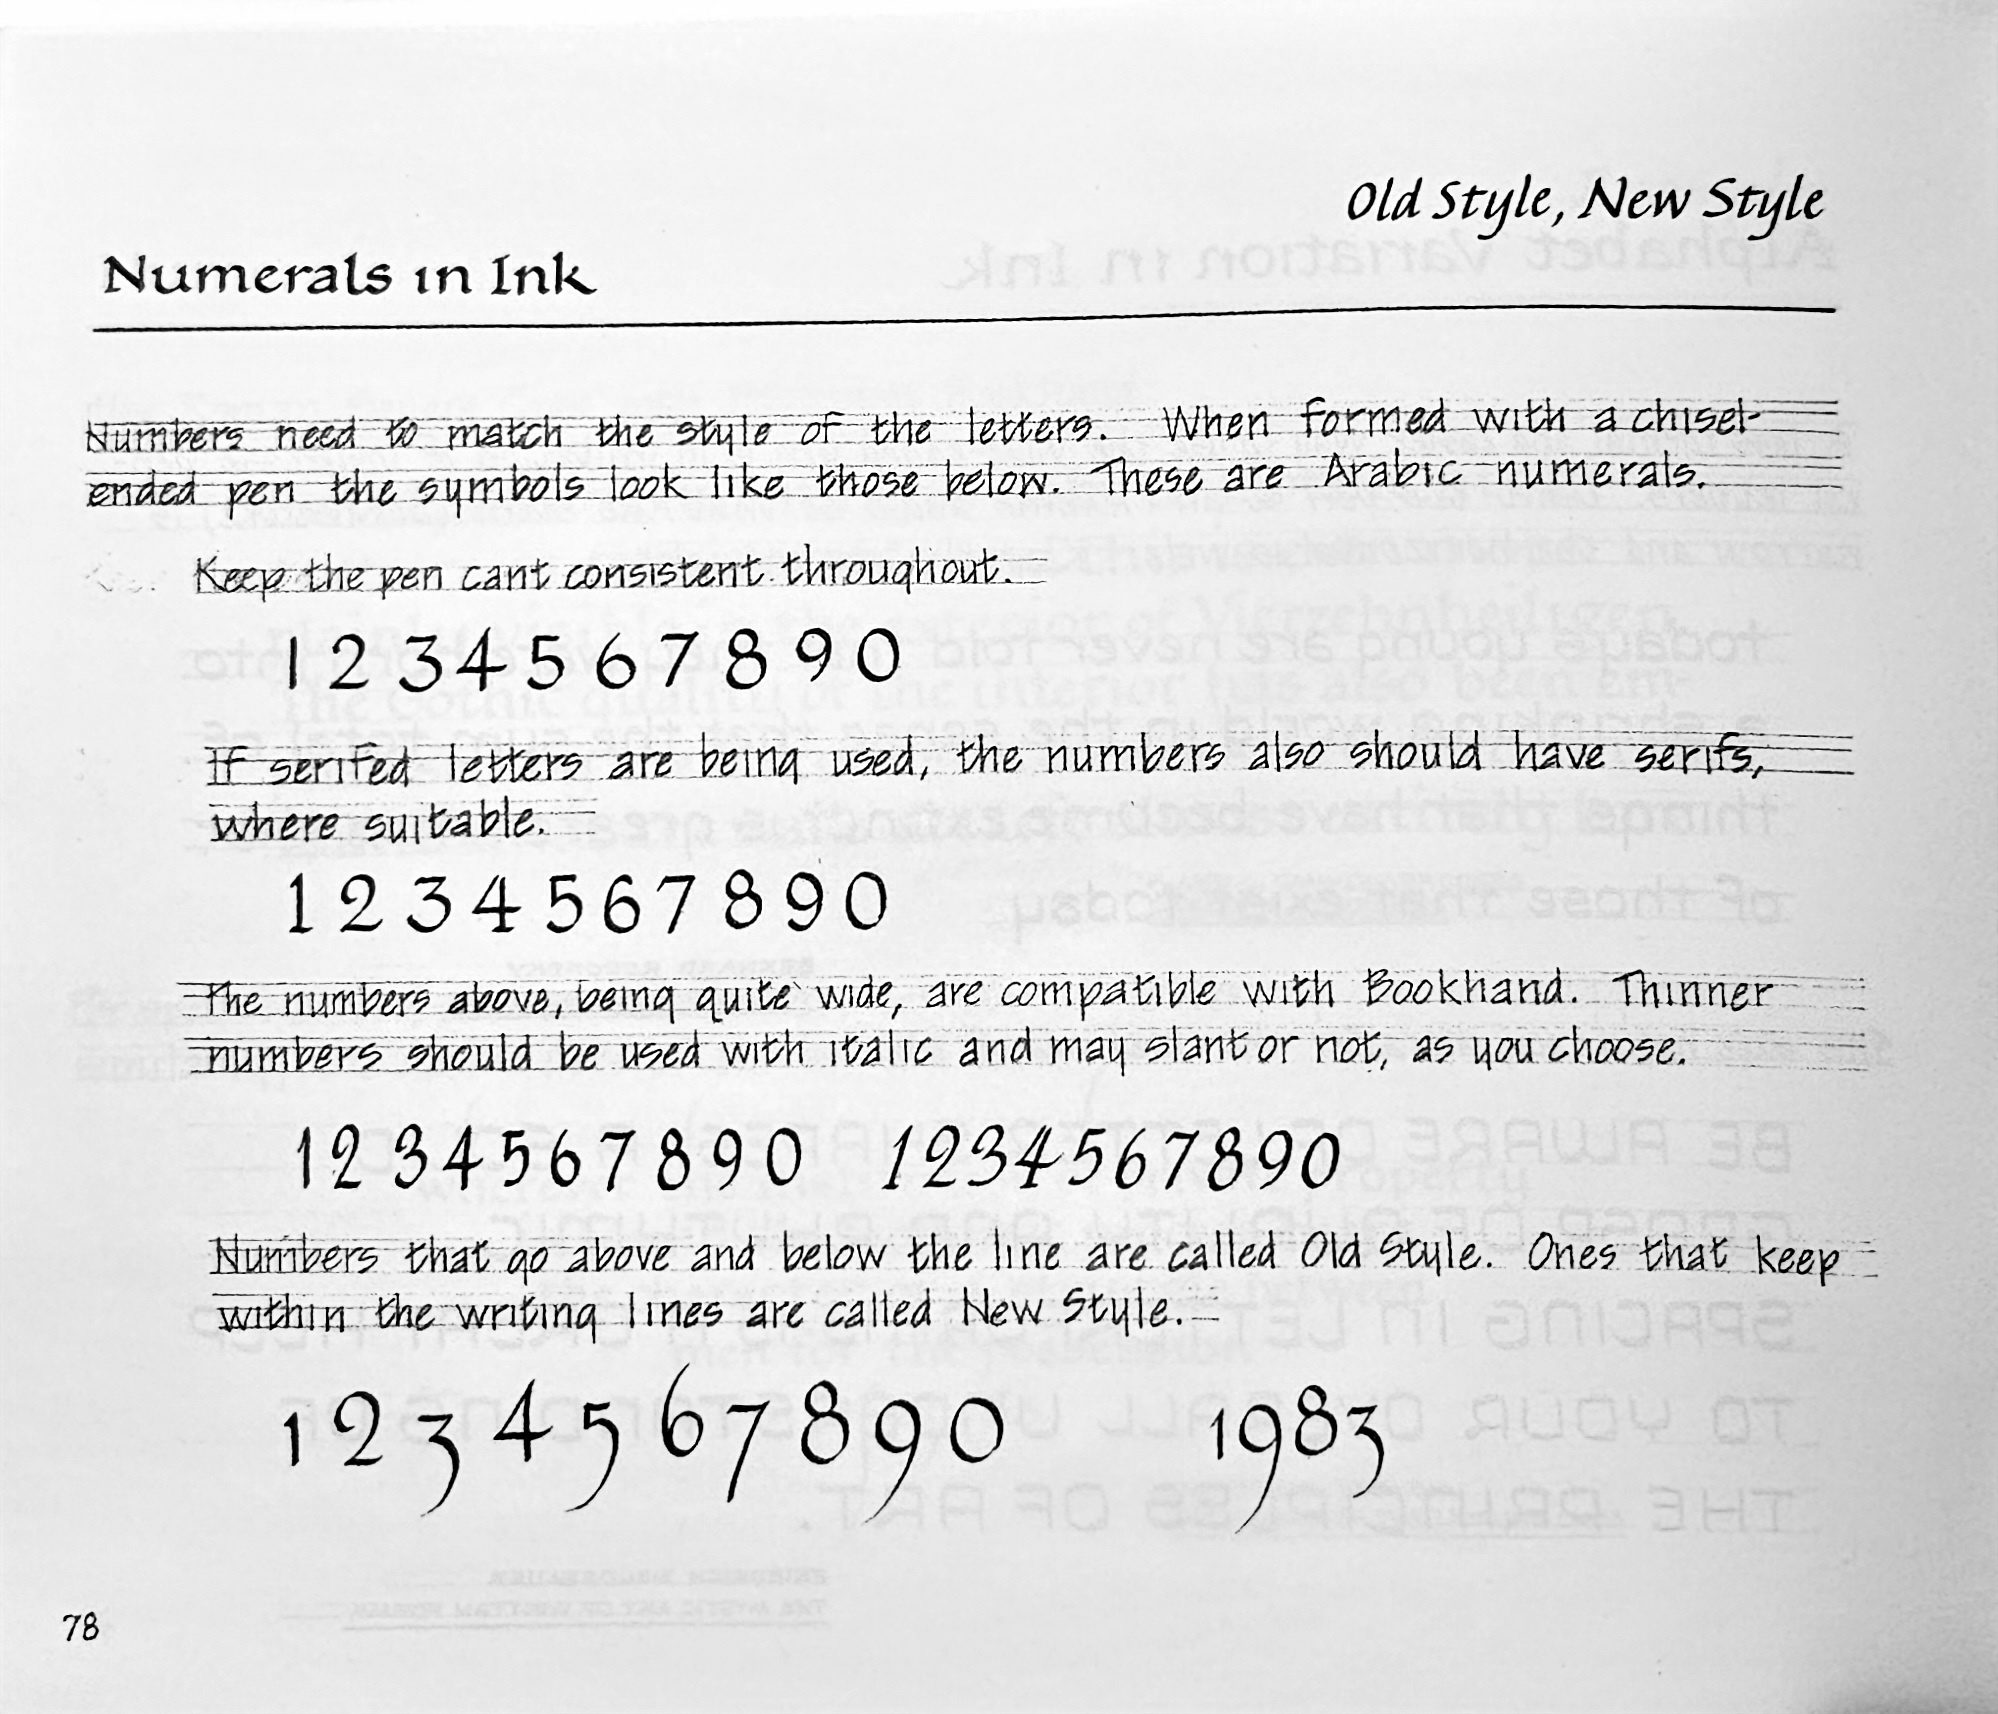 Old Style, New Style
Numerals in Ink
Numbers need to match the style of the letters. When formed with a chisel-
ended pen the symbols look like those below. These are Arabic numerals.
Keep the pen cant consistent throughout.
1 2 3 4 5 6 7 8 9 0
If serifed letters are being used, the numbers also should have serifs,
where suitable.
1 2 3 4 5 6 7 8 9 0
The numbers above, being quite wide, are compatible with Bookhand. Thinner
numbers should be used with italic and may slant or not, as you choose.
1 2 3 4 5 6 7 8 9 0 1 2 3 4 5 6 7 8 9 0
Numbers that go above and below the line are called Old Style. Ones that keep
within the writing lines are called New Style.
1 2 3 4 5 6 7 8 9 0 1983
78